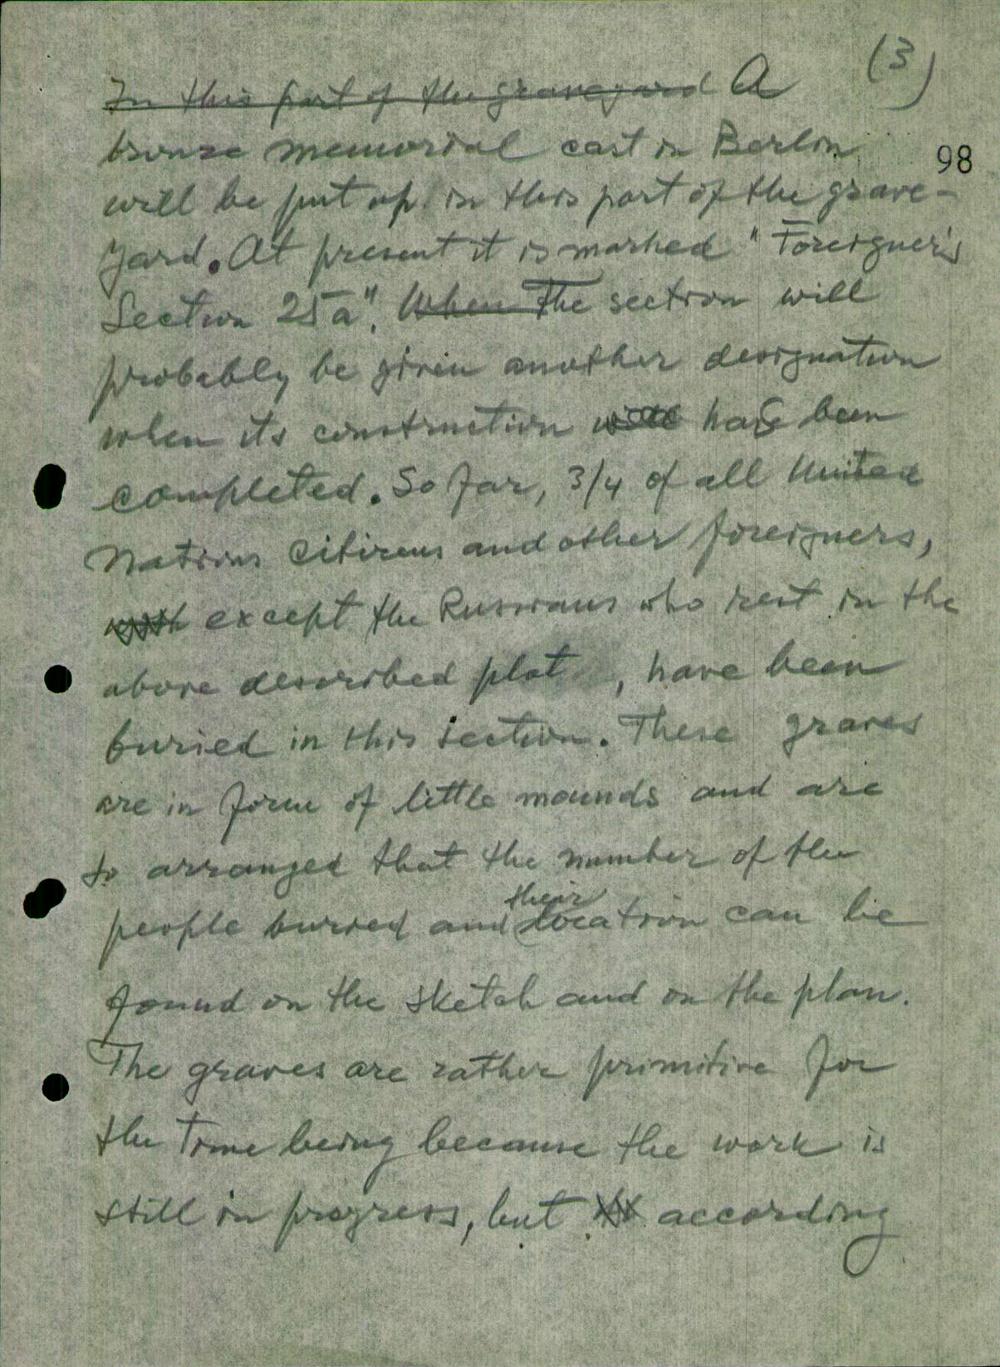 (3)
In this part of the graveyard A
bronze memorial cast in Berlin
98
will be put up in this part of the grave-
yard. At present it is marked "Foreigner's
Section 25a". When The section will
probably be given another designation
when its construction will has been
completed. So far, 3/4 of all United
Nations Citizens and other foreigners,
with except the Russians who rest in the
above described plot , have been
buried in this section. These graves
are in form of little mounds and are
so arranged that the number of the
people buried and their location can be
found on the sketch and on the plan.
The graves are rather primitive for
the time being because the work is
still in progress, but according